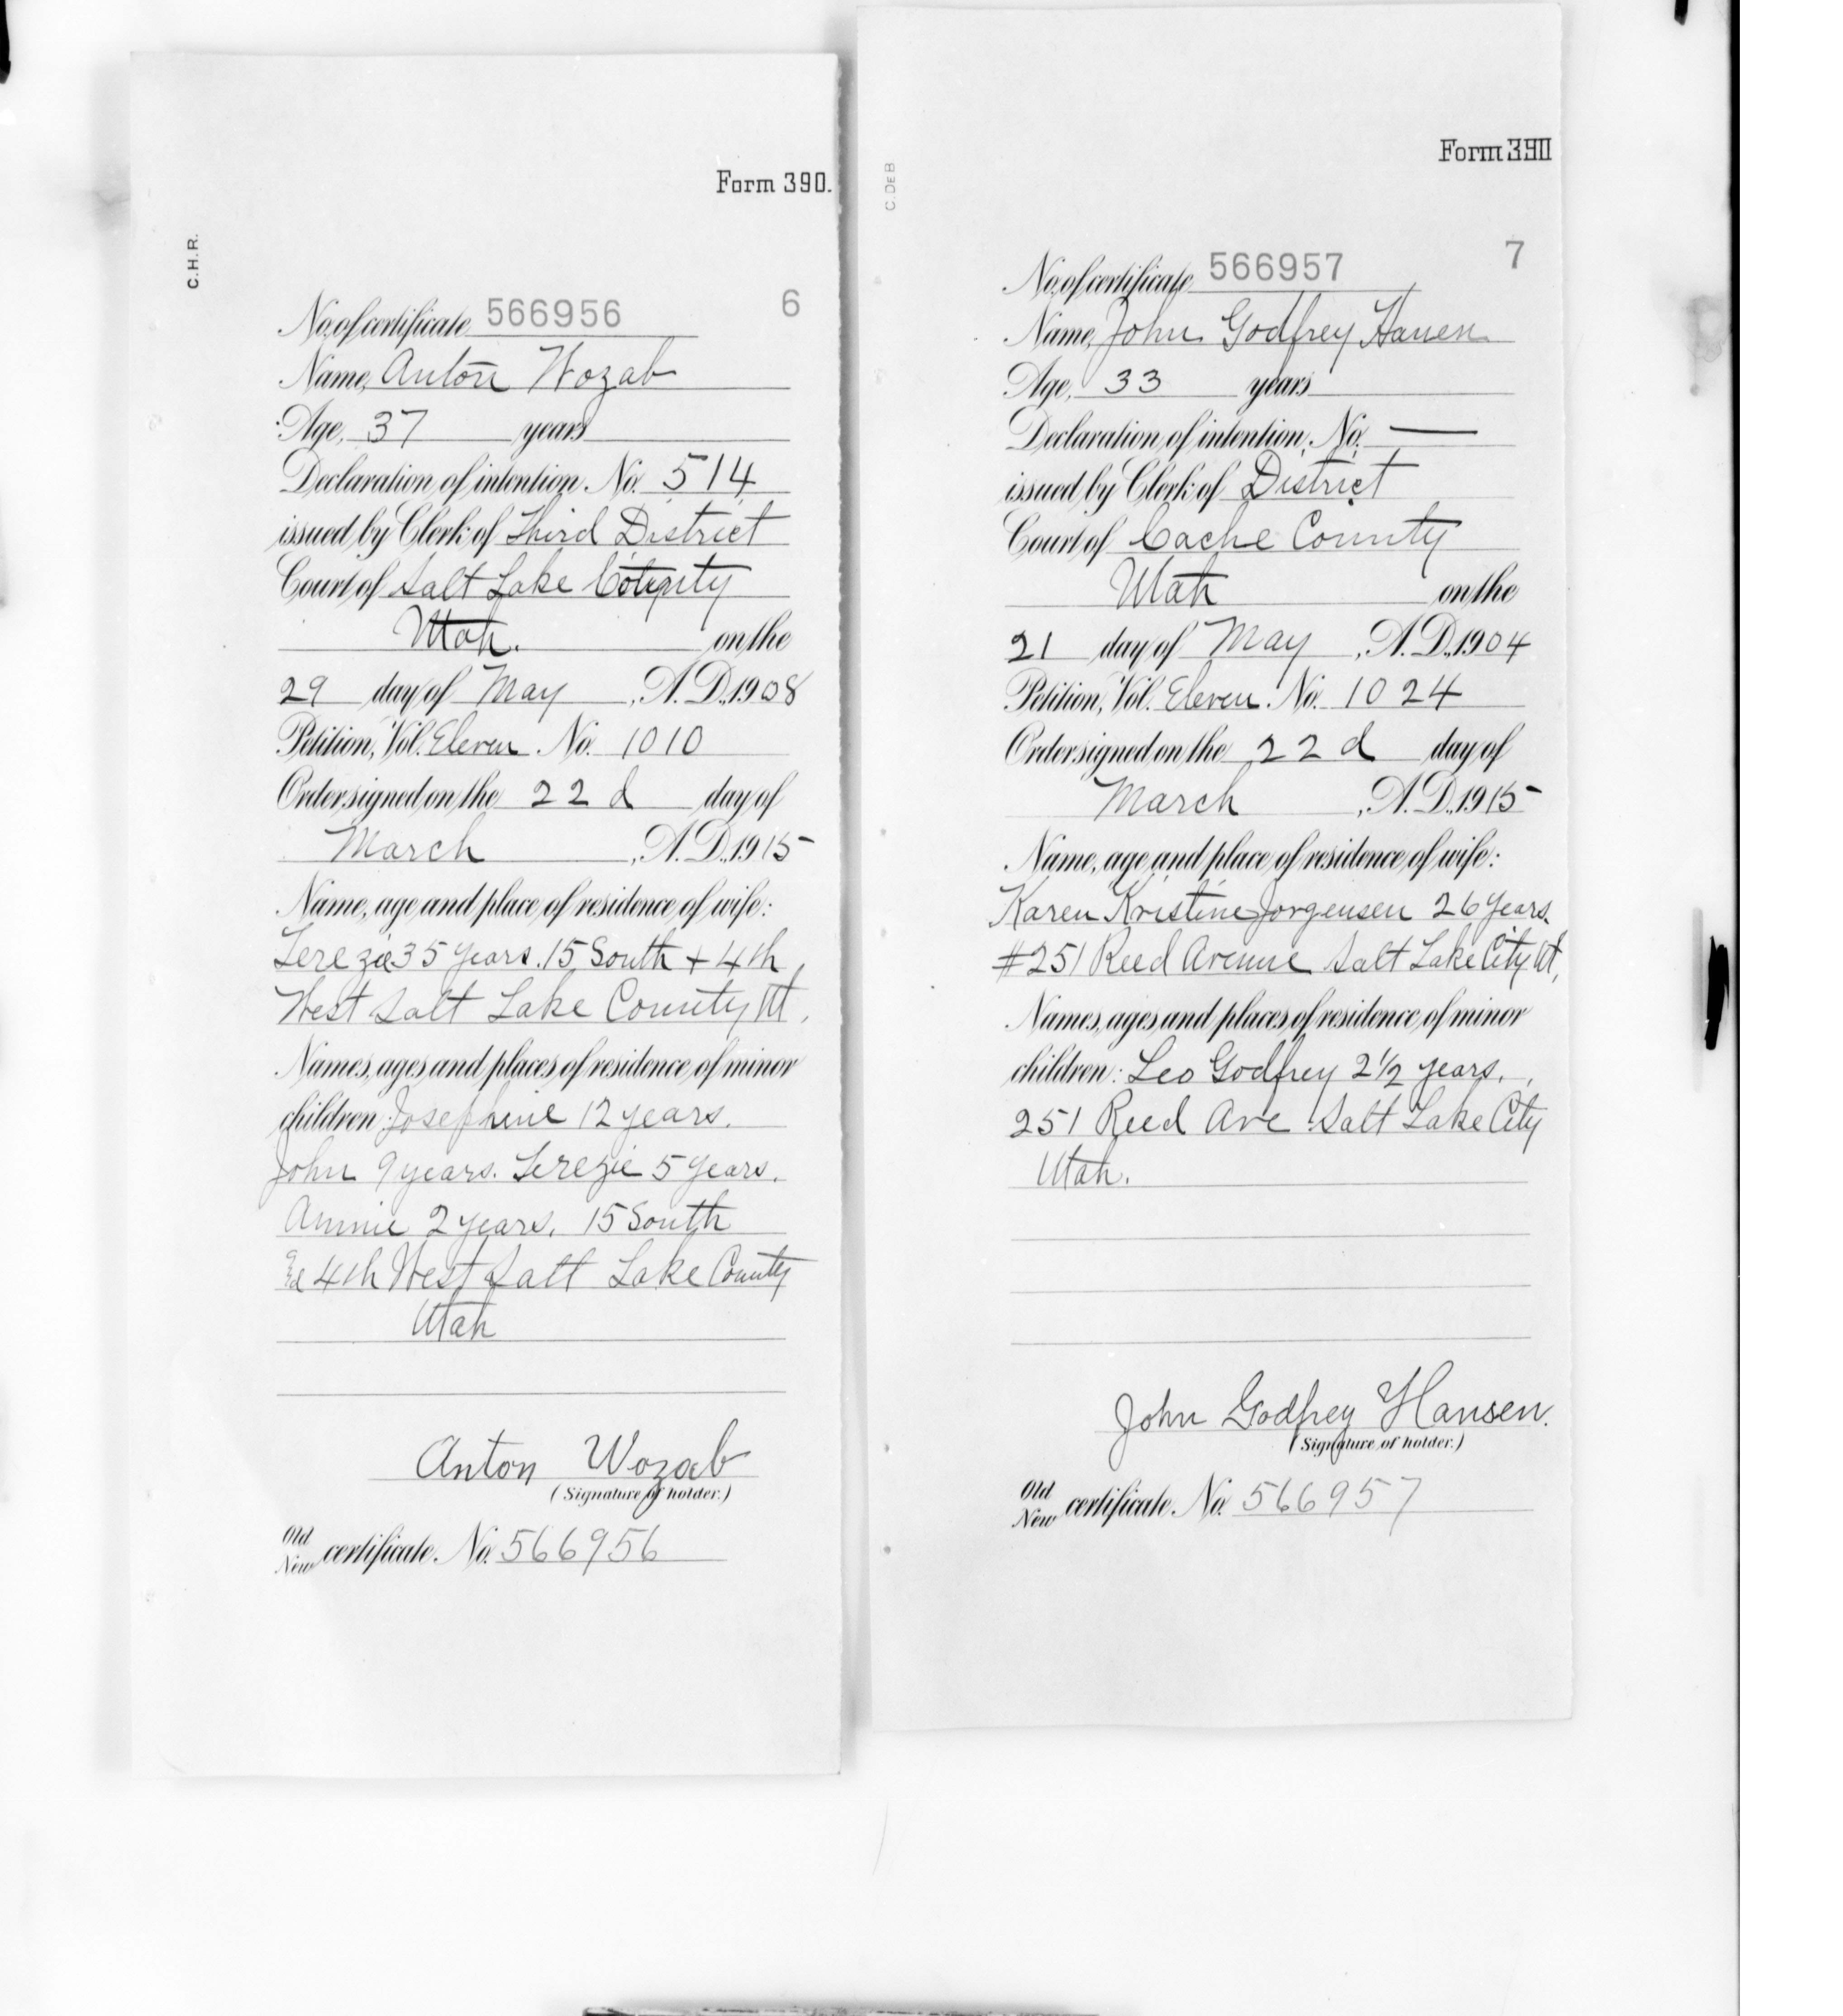 Form 390.
C.H.R.
6
No. of certificate 566956
Name, Anton Wozab
Age, 37 years
Declaration of intention, No. 514
issued by Clerk of Third District
Court of Salt Lake County
Utah. on the
29 day of May, A.D. 1908
Petition, Vol. Eleven No. 1010
Order signed on the 22d day of
March, A.D. 1915
Name, age and place of residence of wife:
Terezie 35 years. 15 South + 4th
West Salt Lake County Ut.
Names, ages and places of residence of minor
children: Josephine 12 years.
John 9 years. Terezie 5 years.
Annie 2 years. 15 South
and 4th West Salt Lake County
Utah
Anton Wozab
(Signature of holder.)
Old
New certificate. No. 566956
Form 390
C.DEB
7
No. of certificate 566957
Name, John Godfrey Hansen
Age, 33 years
Declaration of intention, No. —
issued by Clerk of District
Court of Cache County
Utah on the
21 day of May, A.D. 1904
Petition, Vol. Eleven No. 1024
Order signed on the 22d day of
March, A.D. 1915
Name, age and place of residence of wife:
Karen Kristine Jorgensen 26 years.
#251 Reed Avenue Salt Lake City Ut,
Names, ages and places of residence of minor
children: Leo Godfrey 2 1/2 years.
251 Reed Ave Salt Lake City
Utah.
John Godfrey Hansen.
(Signature of holder.)
Old
New certificate. No. 566957